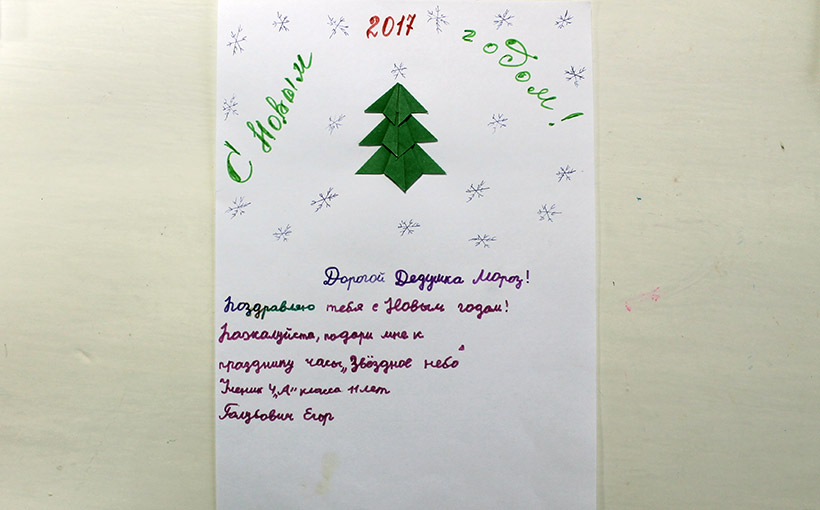 2017
С Новым
годом!
Дорогой Дедушка Мороз!
Поздравляю тебя с Новым годом!
Пожалуйста, подари мне к
празднику часы „Звёздное небо"
Ученик 4„А" класса 11 лет
Голубович Егор